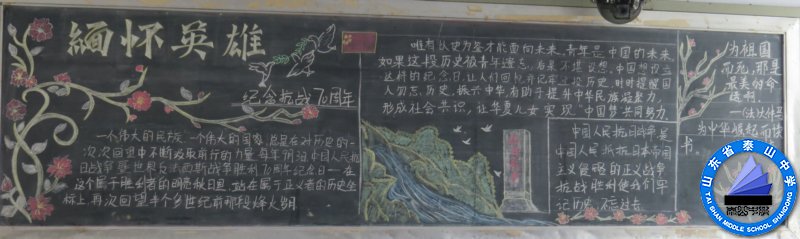 缅怀英雄
纪念抗战70周年
一个伟大的民族 一个伟大的国家 总是在对历史的一
次次回望中不断汲取前行的力量 每年 中国人民抗
日战争暨世界反法西斯战争胜利70周年纪念日
这个属于胜利者的明亮秋日里 站在属于正义者的历史坐
标上 再次回望半个多世纪前那段烽火
唯有以史为鉴才能面向未来 青年是中国的未来
如果这段历史被青年遗忘 后果不堪设想 中国想设立
这样的纪念日 让人们回顾并记牢这段历史 时时提醒国
人勿忘历史 振兴中华 有助于提升中华民族凝聚力
形成社会共识 让华夏儿女实现 中国梦共同努力
中国人民抗日战争是
中国人民抵抗日本帝国
主义侵略的正义战争
抗战胜利使我们牢
记历史 不忘过去
为祖国
而死，那是
最美的命
运啊
为中华崛起而读
书
山东省泰山中学
TAI SHAN MIDDLE SCHOOL SHANDONG